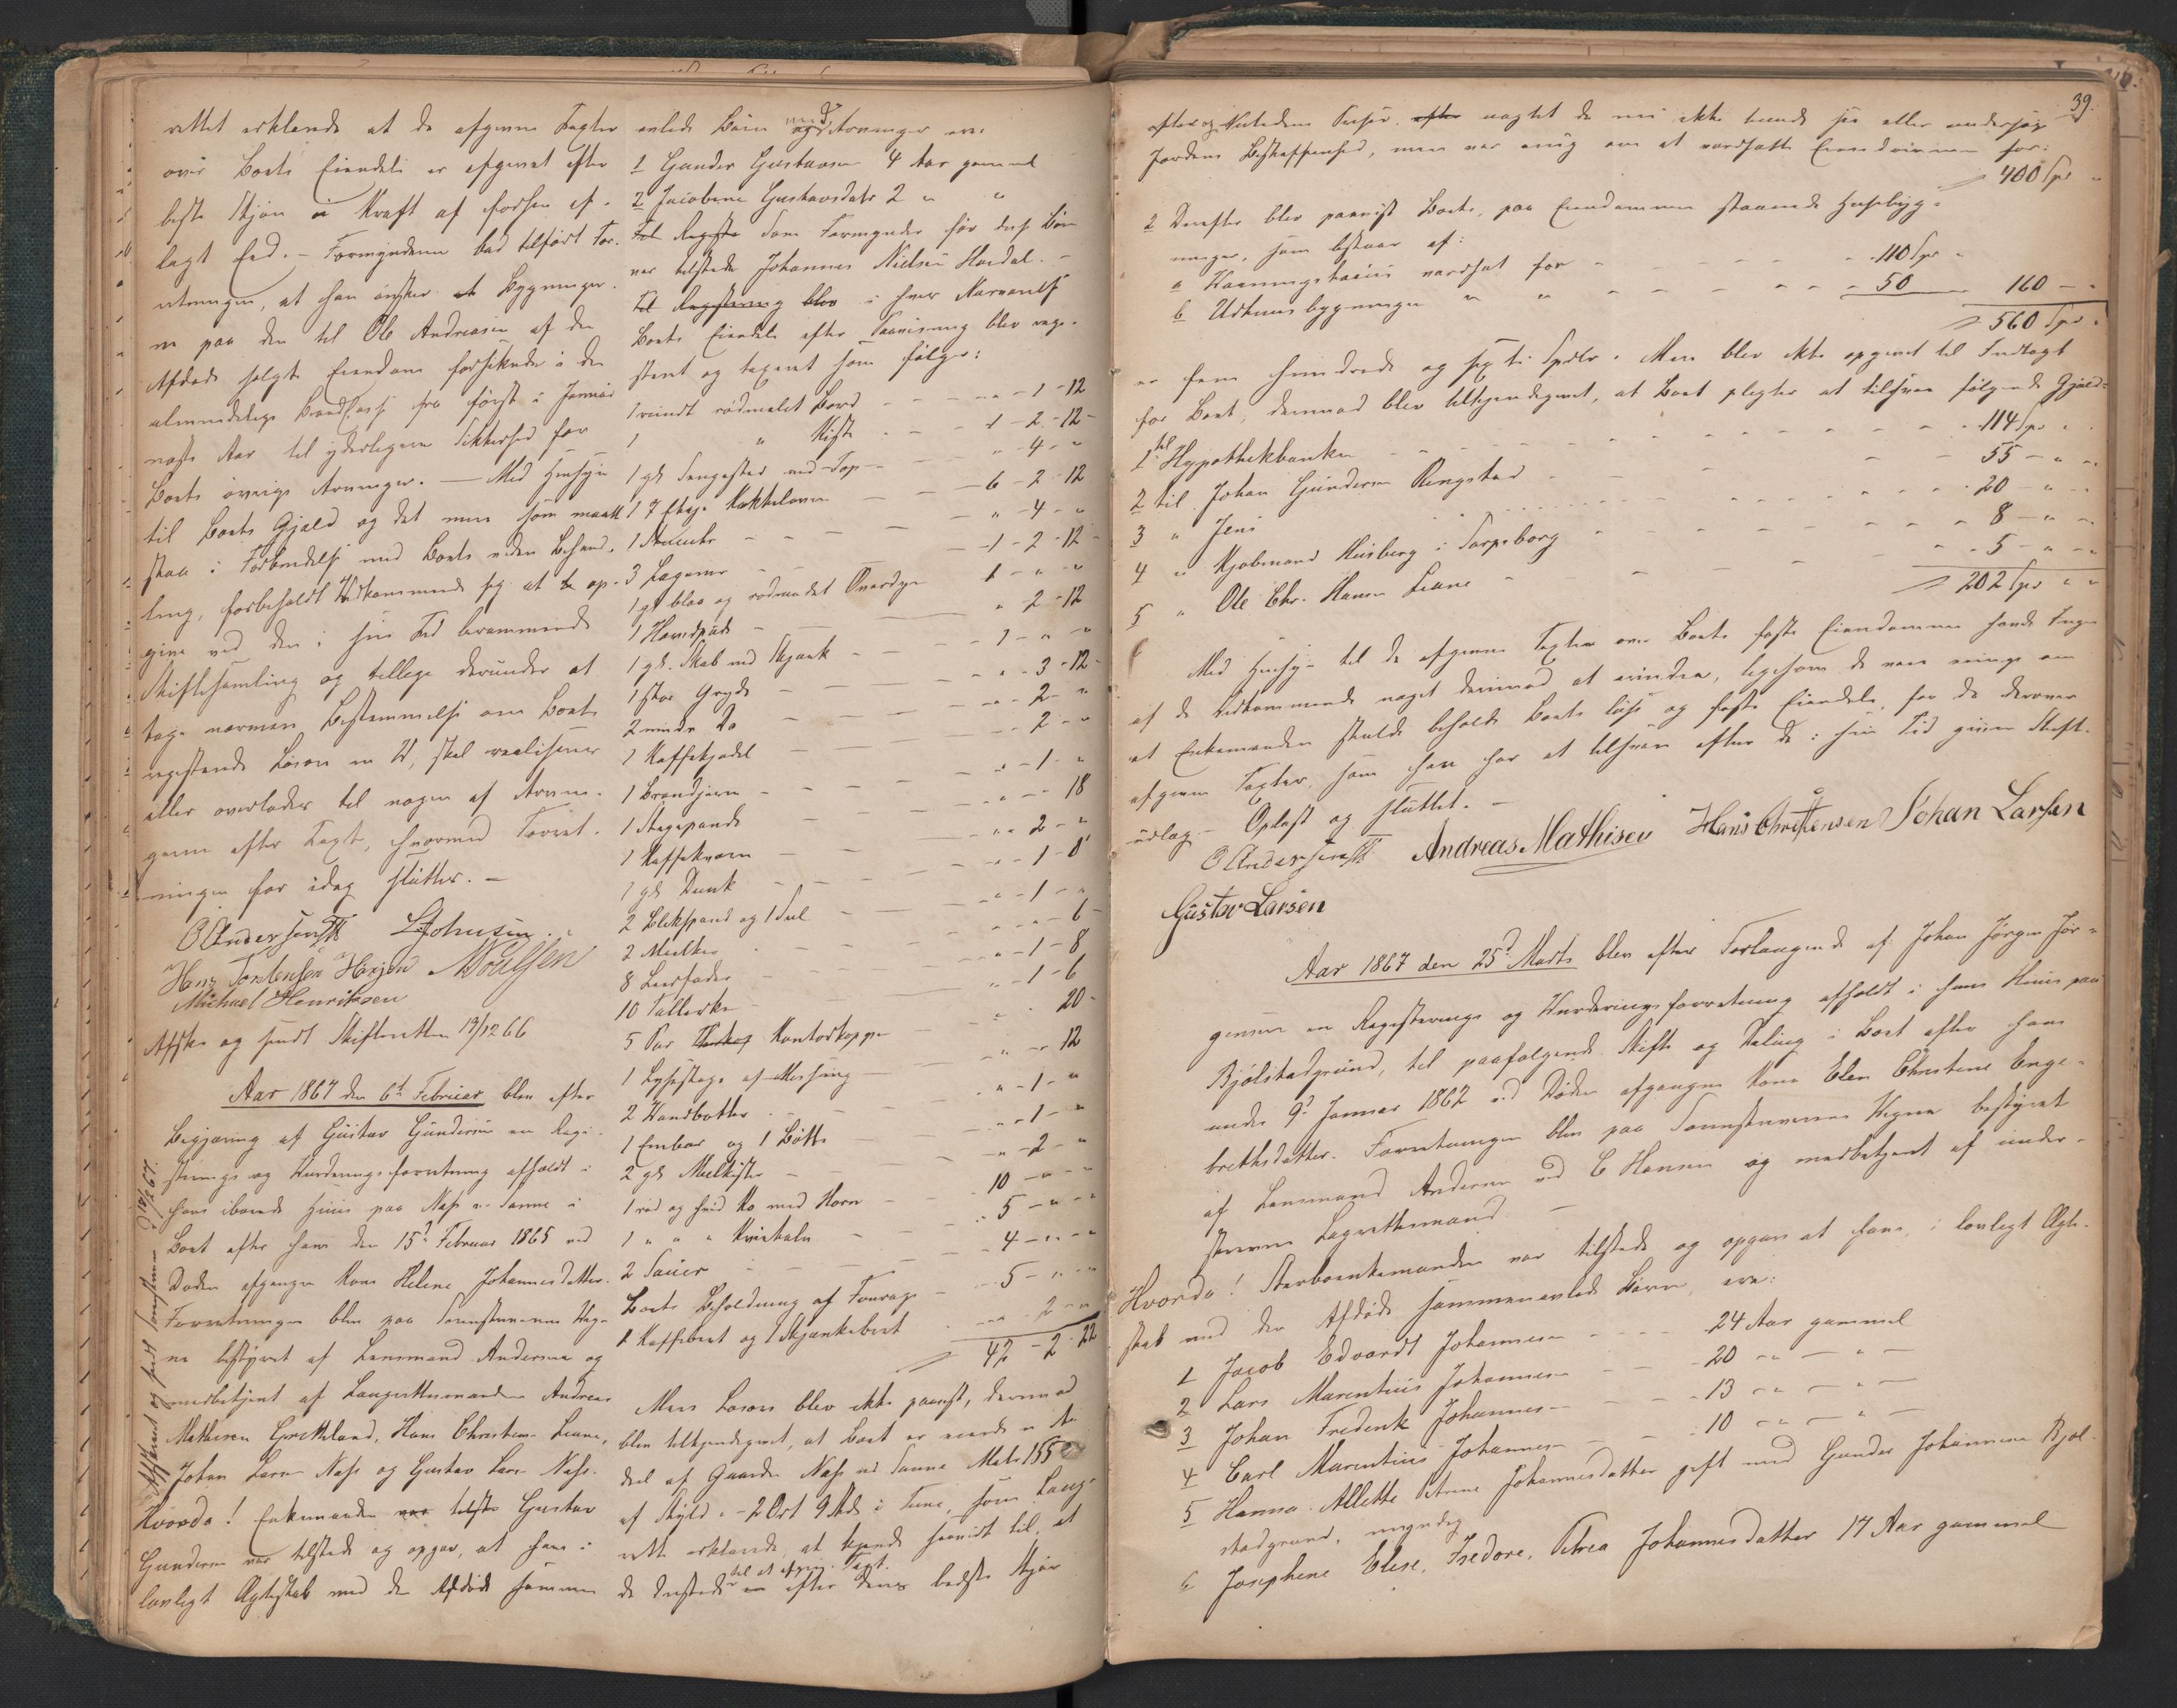 rettet erklærede at de afgivne Taxter
over Boets Eiendele er afgivet efter
beste Skjøn i Kraft af forhen af-
lagt Eed. - Formynderen bad tilført For-
retningen, at han ønsker at Bygninger-
ne paa den til Ole Andreasen af den
Afdøde solgte Eiendom forsikredes i den
almindelige Brandkasse fra først i Januar
næste Aar til yderligere Sikkerhed for
Boets øvrige Arvinger. - Med Hensyn
til Boets Gjæld og det mere som maatte
staa i Forbindelse med Boets videre Behand-
ling, forbeholdt Vedkommende sig at op-
give ved den i sin Tid berammende
Skiftesamling og tillige derunder at
tage nærmere Bestemmelse om Boets
registrerede Løsøre skal realiseres
eller overlades til nogen af Arvin-
gerne efter Taxt, hvormed Forret-
ningen for idag sluttes. -
O Andersen L Johnsen.
Hans Torstensen Høxjen N Poulsen
Michael Henriksen
Afskr. og sendt Skifteretten 13/12 66
Aar 1867 den 6te Februar blev efter
Begjæring af Gustav Gundersen en Regi-
strerings og Vurderingsforretning afholdt i
hans iboende Huus paa Næs i
Boet efter hans den 15de Februar 1865 ved
Døden afgangne Kone Helene Johannesdatter.
Forretningen blev paa Sorenskriverens Veg-
ne bestyret af Lensmand Andersen og
medbetjent af Laugrettesmændene Andreas
Mathisen Gretteland, Hans Christensen Liane,
Johan Larsen Næs og Gustav Larsen Næs.
Hvorda! Enkemanden var tilste Gustav
Gundersen var tilstede og opgav, at hans i
lovligt Ægteskab med den Afdøde sammen
avlede Børn med Arvinger ere:
1 Gunder Gustavsen 4 Aar gammel
2 Jacobine Gustavsdatr 2 " "
Til Registe Som Formynder for disse Børn
var tilstede Johannes Nielsen Hordal. -
Til Registrering blev i hver Nærværelse
Boets Eiendele efter Paavisning blev regi-
streret og taxeret som følger:
1 rundt rødmalet Bord - - - " - 1 - 12
1 " Kiste - - - 1 - 2 - 12 -
1 gl. Sengested med Top - - - " - 4 - "
1 2 Etages Kakkelovn - - - 6 - 2 - 12
1 - - - " - 4 - "
3 Lagener - - - 1 - 2 - 12 -
1 gl. blaa og rødrandet Overdyne 1 - " - "
1 Hovedpude - - - " 2 - 12
1 gl. Skab med Skjænk - - - 1 - " - "
1 stor Gryde - - - " - 3 - 12 -
2 mindre Do - - - " - 2 - "
1 Kaffekjedel - - - " - 2 - "
1 Brændjern - - - " - 1 - "
1 Stegepande - - - " - " - 18
1 Kaffekværn - - - " - 2 - "
1 gl. Dunk - - - " - 1 - 8
2 Blikspand og 1 Sil - - - " - 1 - "
2 - - - " - " - 6 -
8 Leerfade - - - " - 1 - 8
10 Tallerkner - - - " - 1 - 6
5 Par Kontorkopper - - - 20 -
1 Lysestage af Messing - - - " - " - 12
2 Vandbøtter - - - " - 1 - "
1 Embar og 1 Bøtte - - - " - 1 - "
2 gl. Meelkister - - - " - 2 - "
1 rød og hvid Ko med Horn - - - 10 - " - "
1 " " " Kviekalv - - - 5 - " - "
2 Sauer - - - 4 - " - "
Boets Beholdning af Fourage - - - 5 - " - "
1 Kaffebret og 1 Skjænkebret - - " - 2 - "
42 - 2 - 22
Mere Løsøre blev ikke paavist, derimod
blev tilkjendegivet, at Boet er eiende en
deel af Gaarden Næs ved Sanne Matr 155
af Skyld. - 2 Ort 9 Sk. i Tune, som Laug-
rette erklærede, at kjende forinden til, at
de Instedet til at afgive Taxt. efter deres bedste Skjøn
Afskrevet og sendt Sorenskriveren 18/2 67.
39.
efter nagtet de nu ikke kunde see eller undersøge
Jordens Beskaffenhed, men var enig om at værdsætte Eiendommen for:
400 Spd "
2 Derefter blev paavist Boets, paa Eiendommen staaende Huusbyg-
ninger, som bestaar af:
a Vaaningshuus værdsat for - - - - 110 Spd "
b Udhuusbygningen " " - - - - 50 160 - "
560 Spd.
er fem hundrede og sexti Spdlr. Mere blev ikke opgivet til Indtægt
for Boet, derimod blev tilkjendegivet, at Boet pligter at tilsvare følgende Gjæld:
1 til Hypothekbanken - - - 114 Spd "
2 til Johan Gundersen Ringstad - - - 55 - " -
3 " Jens - - - 20 - " -
4 " Kjøbmand Huisberg i Sarpsborg - - - 8 - " -
5 " Ole Chr. Hansen Liane - - - 5 - " -
202 Spd " "
Med Hensyn til de afgivne Taxter over Boets faste Eiendommen havde Ingen
af de Vedkommende noget derimod at erindre, ligesom de vare enige om
at Enkemanden skulde beholde Boets løse og faste Eiendele, for de derover
afgivne Taxter, som han har at tilsvare efter de i sin Tid givne Skifte-
udlæg - Oplæst og sluttet. -
O Andersen Andreas Mathisen Hans Christensen Johan Larsen
Gustav Larsen
Aar 1867 den 25d Marts blev efter Forlangende af Johan Jørgen Jør-
gensen en Registrerings og Vurderingsforretning afholdt i hans Huus paa
Bjølstadgrund, til paafølgende Skifte og Deling i Boet efter hans
under 9d Januar 1862 ved Døden afgangne Kone Elen Christine Enge-
brethsdatter. Forretningen blev paa Sorenskriverens Vegne bestyret
af Lensmand Andersen ved C Hansen og medbetjent af under-
skrevne Lagrettesmænd -
Hvorda! Sterboenkemanden var tilstede og opgav at hans i lovligt Ægte-
skab med den Afdøde sammenavlede Børn, ere:
1 Jacob Edvardt Johannesen - - - - 24 Aar gammel
2 Lars Marentius Johannesen - - - 20 - " - " -
3 Johan Fredrik Johannesen - - - 13 - " - " -
4 Carl Marentius Johannesen - - - 10 - " - " -
5 Hanna Allette Petrine Johannesdatter gift med Gunder Johannesen Bjøl-
stadgrund, myndig
6 Josephine Elise, Isedore, Petrea Johannesdatter 17 Aar gammel